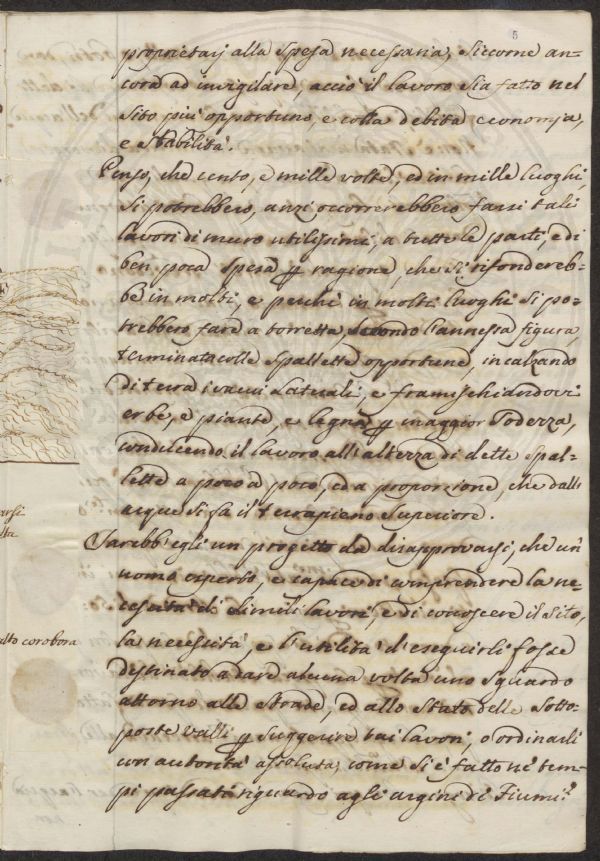 5
proprietarj alla spesa necessaria, siccome an-
cora ad invigilare, acciò il lavoro sia fatto nel
sito più opportuno, e colla debita economia,
e stabilità.
Penso, che cento, e mille volte, ed in mille luoghi,
si potrebbero, anzi occorrerebbero farsi tali
lavori di muro utilissimi, a tutte le parti, e di
ben poca spesa per ragione, che si rifondereb-
be in molti, e perchè in molti luoghi si po-
trebbero fare a borretta, secondo l'annessa figura,
terminata colle spallette opportune, incalzando
di terra i vacui laterali, e framischiandovi
erbe, e piante, e legna per maggior sodezza,
conducendo il lavoro all'altezza di dette spal-
lette a poco a poco, ed a proporzione, che dall'
acque si fa il terrapieno superiore.
Sarebb'egli un progetto da disapprovarsi, che un
uomo esperto, e capace di comprendere la ne-
cessità di simili lavori, e di conoscere il sito,
la necessità, e l'utilità d'eseguirli fosse
destinato a dare alcuna volta uno sguardo
attorno alle strade, ed allo stato delle sotto-
poste valli per suggerire tai lavori, o ordinarli
con autorità assoluta, come si è fatto ne' tem-
pi passati riguardo agli argini de' Fiumi?
alto corobora